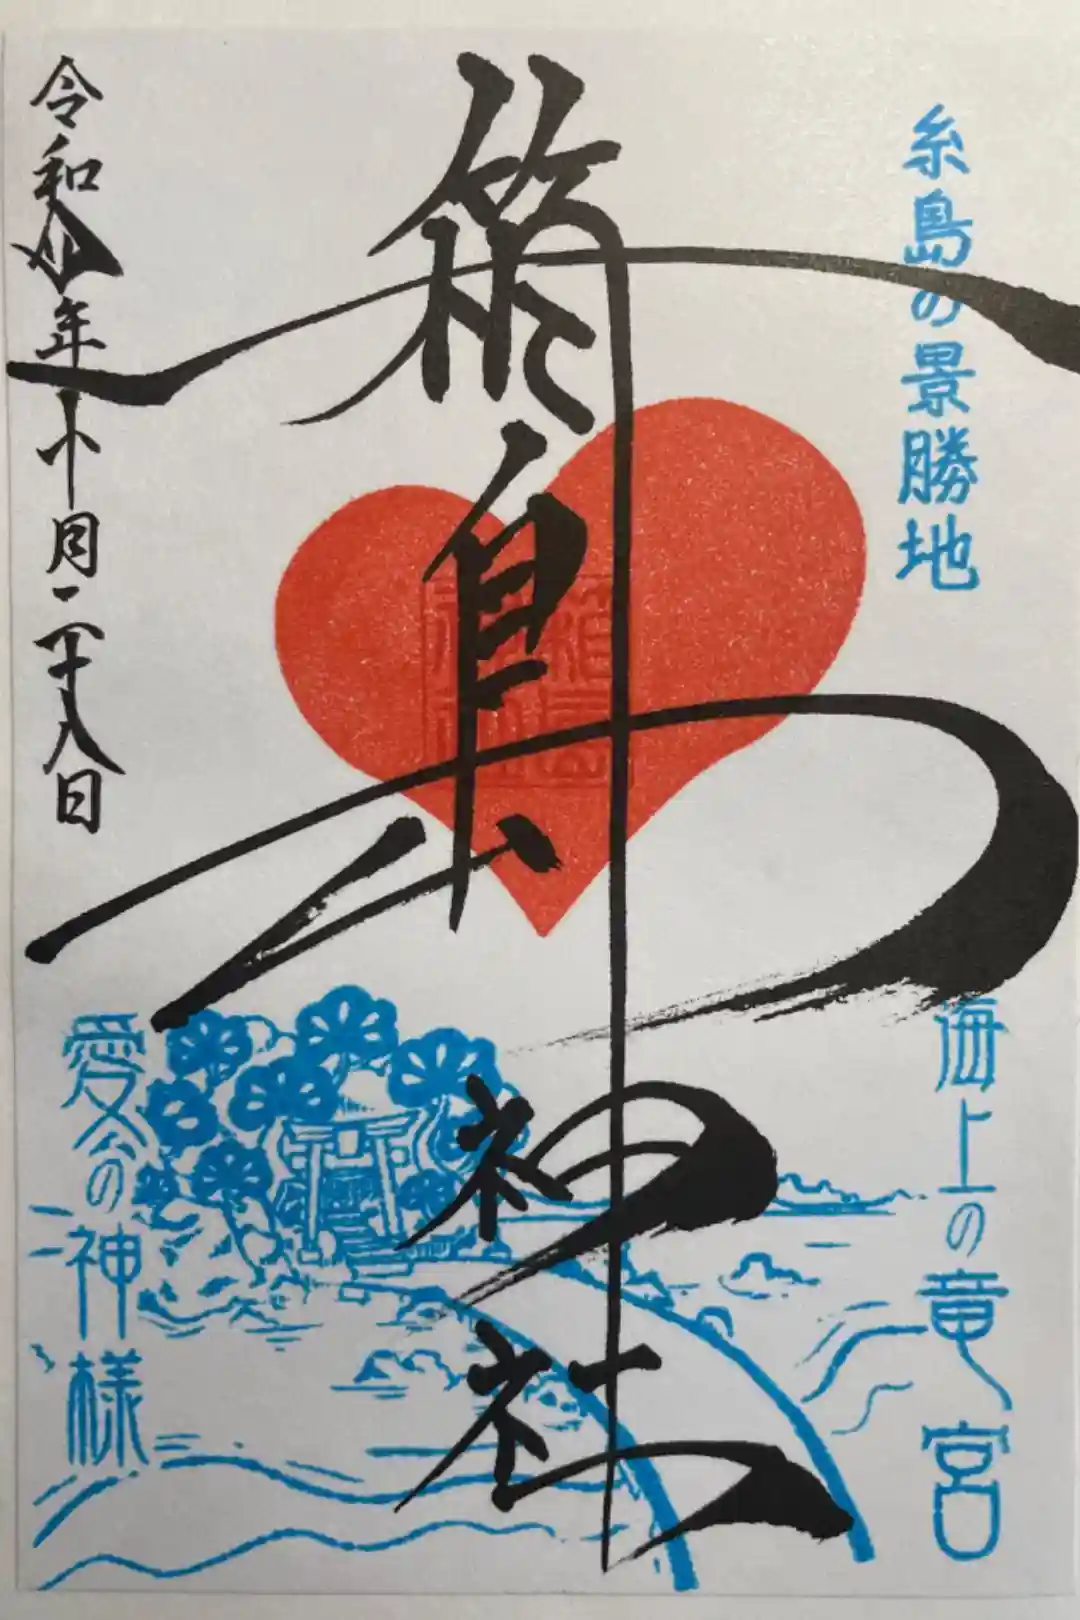 糸島の景勝地
海上の竜宮
箱島神社
愛の神様
十月二十八日